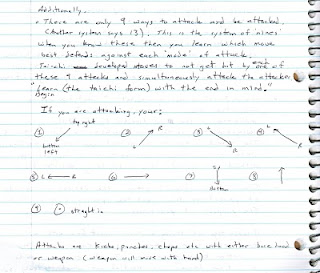 Additionally,
• There are only 9 ways to attack and be attacked.
(Another system says 13). This is the system of 'nines'
when you know these then you learn which move
best defends against each 'mode' of attack.
Taichi developed moves to not get hit by each one of
these 9 attacks and simultaneously attack the attacker
"Learn (the taichi form) with the end in mind."
Begin
If you are attacking, your:
top right
① ② R ③ L ④ L
bottom left L R R
⑤ L R ⑥ ⑦ ⑧
bottom
⑨ straight in
Attacks are kicks, punches, chops, etc with either bare hand
or weapon (weapon will move with hand)